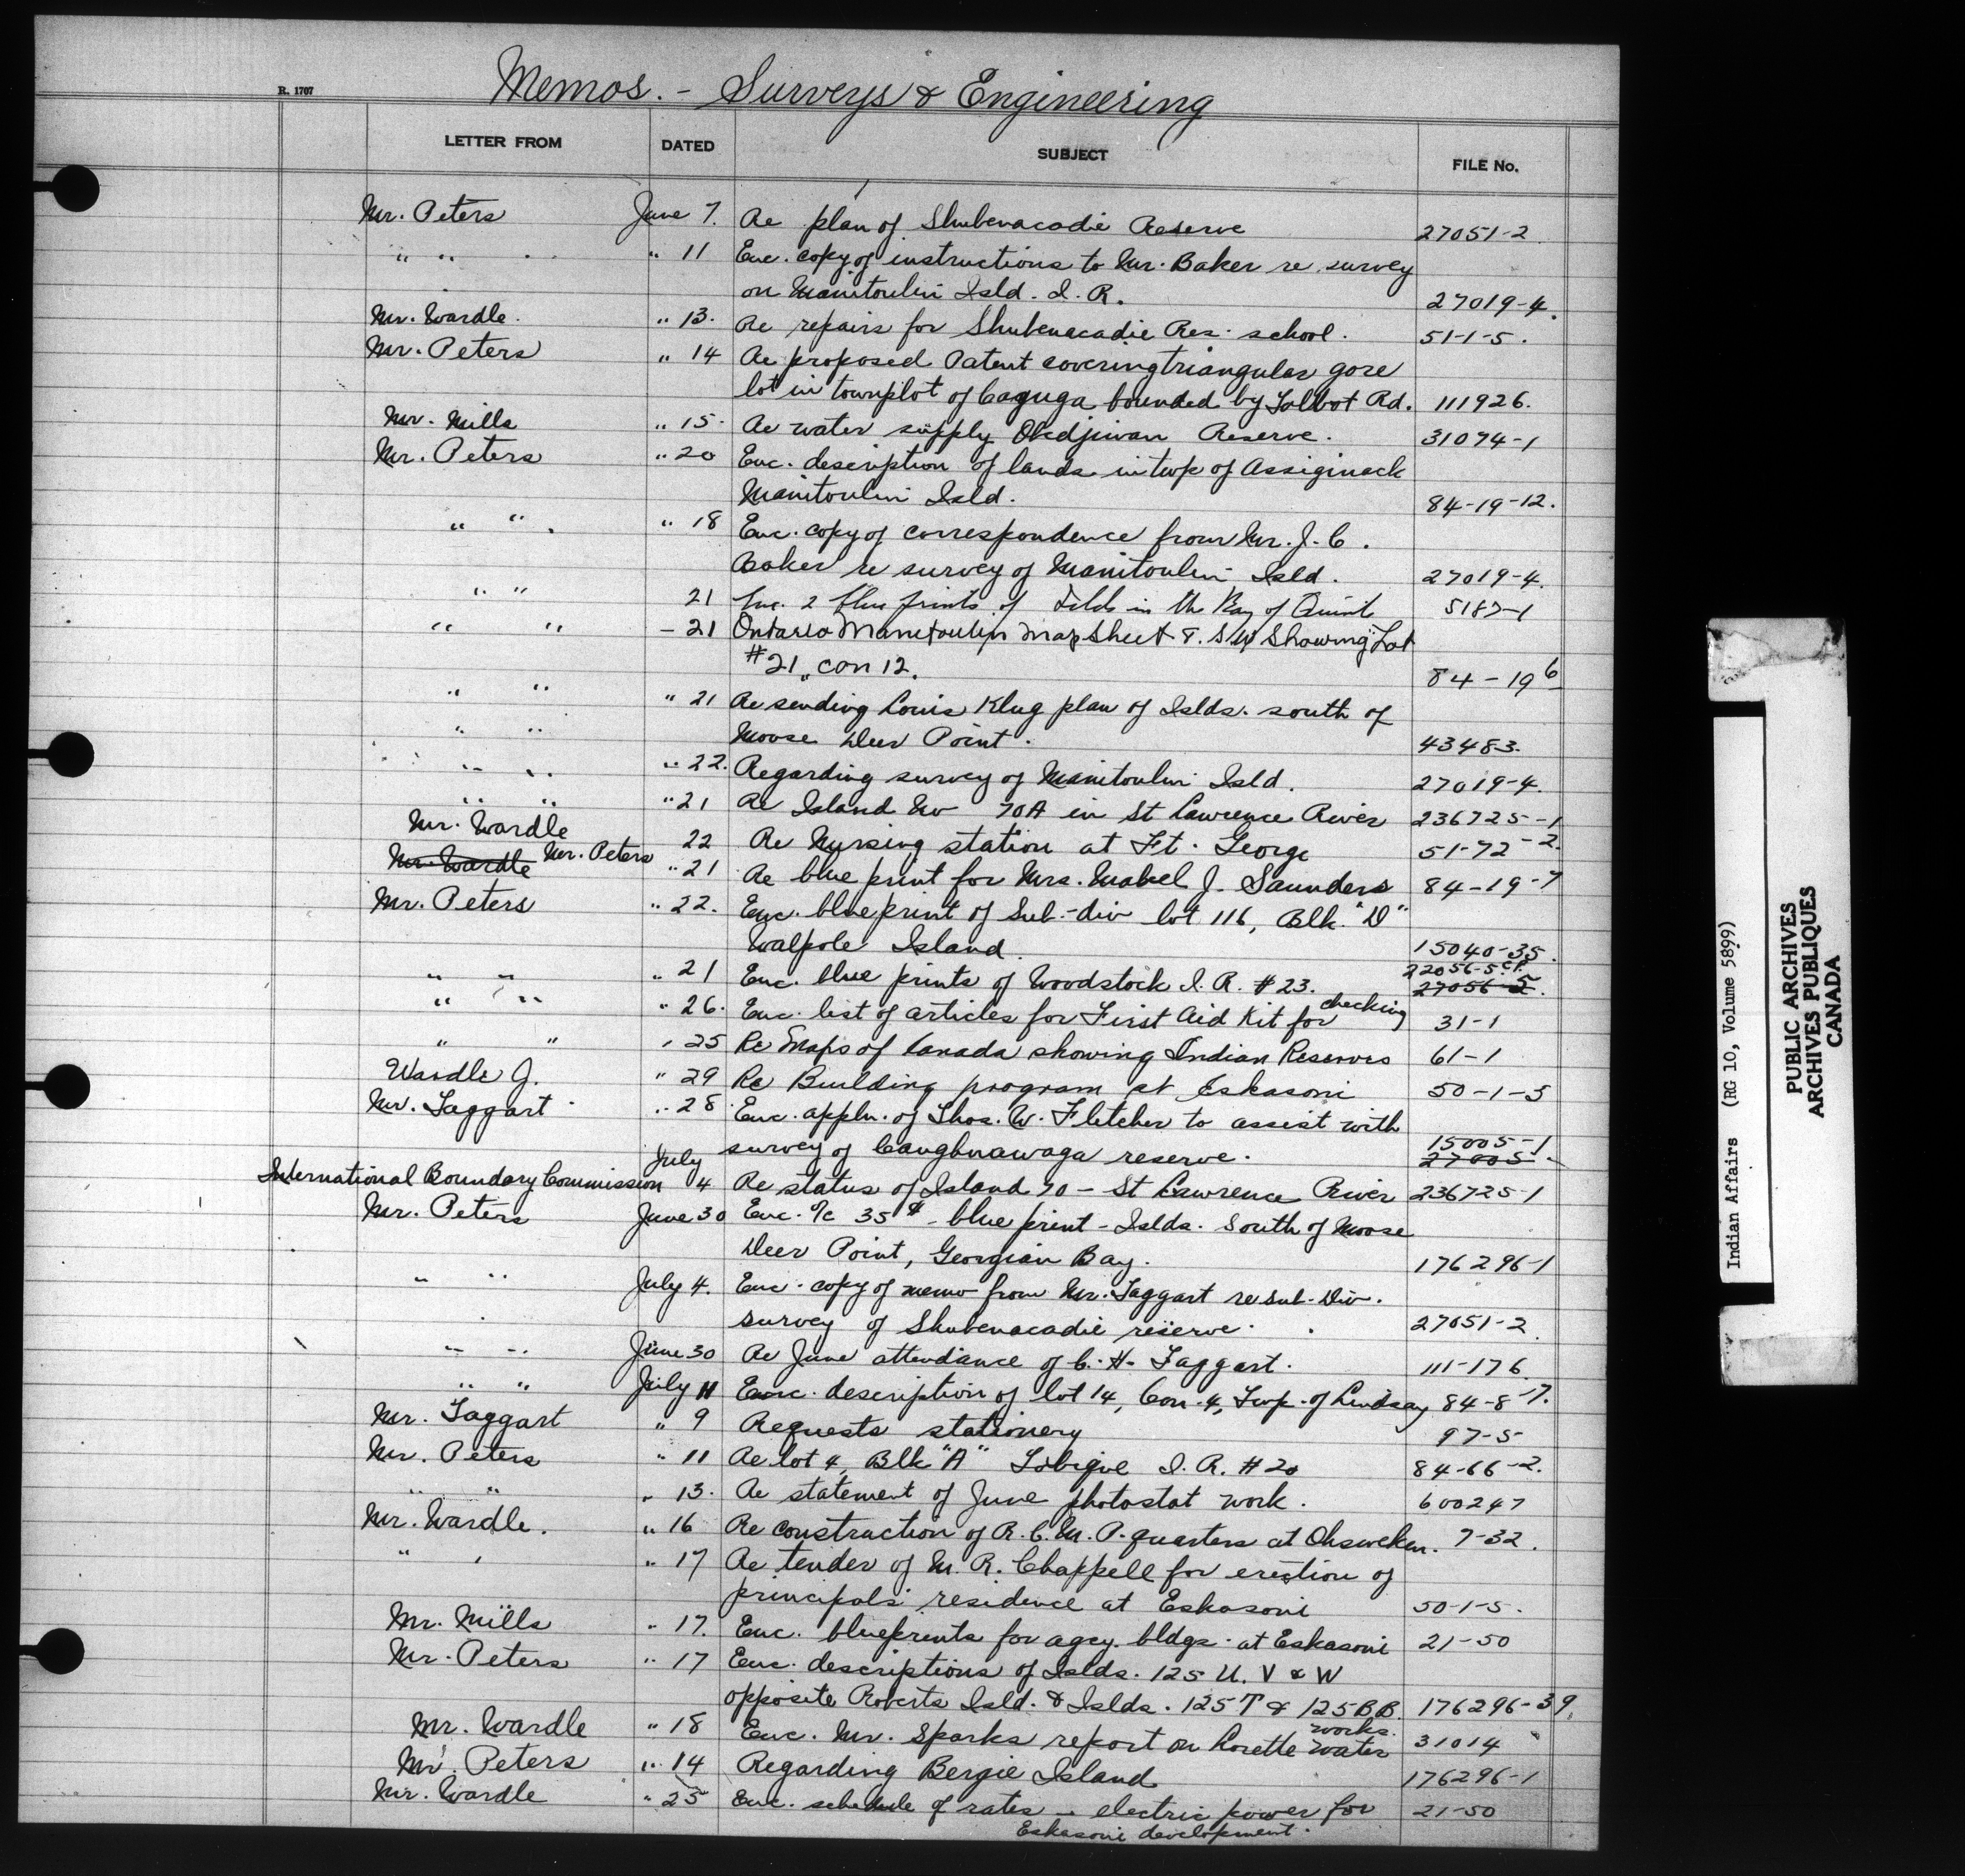 Memos. - Surveys & Engineering
R. 1707
LETTER FROM DATED SUBJECT FILE No.
Mr. Peters June 7. Re plan of Shubenacadie Reserve 27051-2
" " " 11 Enc. copy of instructions to Mr. Baker re survey
on Manitoulin Isld. I. R. 27019-4.
Mr. Wardle. " 13. Re repairs for Shubenacadie Res. school. 51-1-5.
Mr. Peters " 14 Re proposed Patent covering triangular gore
lot in townplot of Cayuga bounded by Talbot Rd. 111926.
Mr. Mills " 15. Re water supply Obedjiwan Reserve. 31074-1
Mr. Peters " 20 Enc. description of lands in twp of Assiginack
Manitoulin Isld. 84-19-12.
" " " 18 Enc. copy of correspondence from Mr. J. C.
Baker re survey of Manitoulin Isld. 27019-4.
" " 21 Enc. 2 blue prints of Islds in the Bay of Quint 5187-1
" " - 21 Ontario Manitoulin Map Sheet T. S W Showing Lot
#21, con 12. 84-19 6
" " " 21 Re sending Louis Klug plan of Islds. south of
" " Moose Deer Point. 43483.
" " " 22. Regarding survey of Manitoulin Isld. 27019-4.
" " " 21 Re Island No 70A in St Lawrence River 236725-1
Mr. Wardle 22 Re Nursing station at Ft. George 51-72-2.
Mr. Wardle Mr. Peters " 21 Re blue print for Mrs. Mabel J. Saunders 84-19-7
Mr. Peters " 22. Enc. blue print of Sub-div lot 116, Blk. "D"
Walpole Island. 15040-35.
" " " 21 Enc. blue prints of Woodstock I. R. #23. 22056-5 27056-5.
" " " 26. Enc. list of articles for First Aid Kit for checking 31-1
" " " 25 Re Maps of Canada showing Indian Reserves 61-1
Wardle J. " 29 Re Building program at Eskasoni 50-1-5
Mr. Taggart " 28. Enc. appln. of Thos. W. Fletcher to assist with
survey of Caughnawaga reserve. 15005-1 27005-
International Boundary Commission July 4 Re status of Island 70 - St Lawrence River 236725-1
Mr. Peters June 30 Enc. 35¢ - blue print - Islds. South of Moose
Deer Point, Georgian Bay. 176296-1
" " July 4. Enc. copy of memo from Mr. Taggart re sub-Div.
survey of Shubenacadie reserve. 27051-2
" " June 30 Re June attendance of C. H. Taggart. 111-176
" " July 11 Enc. description of lot 14, Con. 4, Twp. of Lindsay 84-8-7.
Mr. Taggart " 9 Requests stationery 97-5
Mr. Peters " 11 Re lot 4, Blk "A" Tobique I. R. #20 84-66-2.
" " " 13. Re statement of June photostat work. 600247
Mr. Wardle. " 16 Re construction of R. C. M. P. quarters at Ohsweken. 7-32.
" " " 17 Re tender of M. R. Chappell for erection of
principals residence at Eskasoni 50-1-5.
Mr. Mills " 17. Enc. blueprints for agcy. bldgs. at Eskasoni 21-50
Mr. Peters " 17 Enc. descriptions of Islds. 125 U. V & W
opposite Roberts Isld. & Islds. 125 T & 125 BB. 176296-39.
Mr. Wardle " 18 Enc. Mr. Sparks report on Lorette water works. 31014
Mr. Peters " 14 Regarding Bergie Island 176296-1
Mr. Wardle " 25 Enc. schedule of rates - electric power for 21-50
Eskasoni development.
Indian Affairs (RG 10, Volume 5899)
PUBLIC ARCHIVES
ARCHIVES PUBLIQUES
CANADA